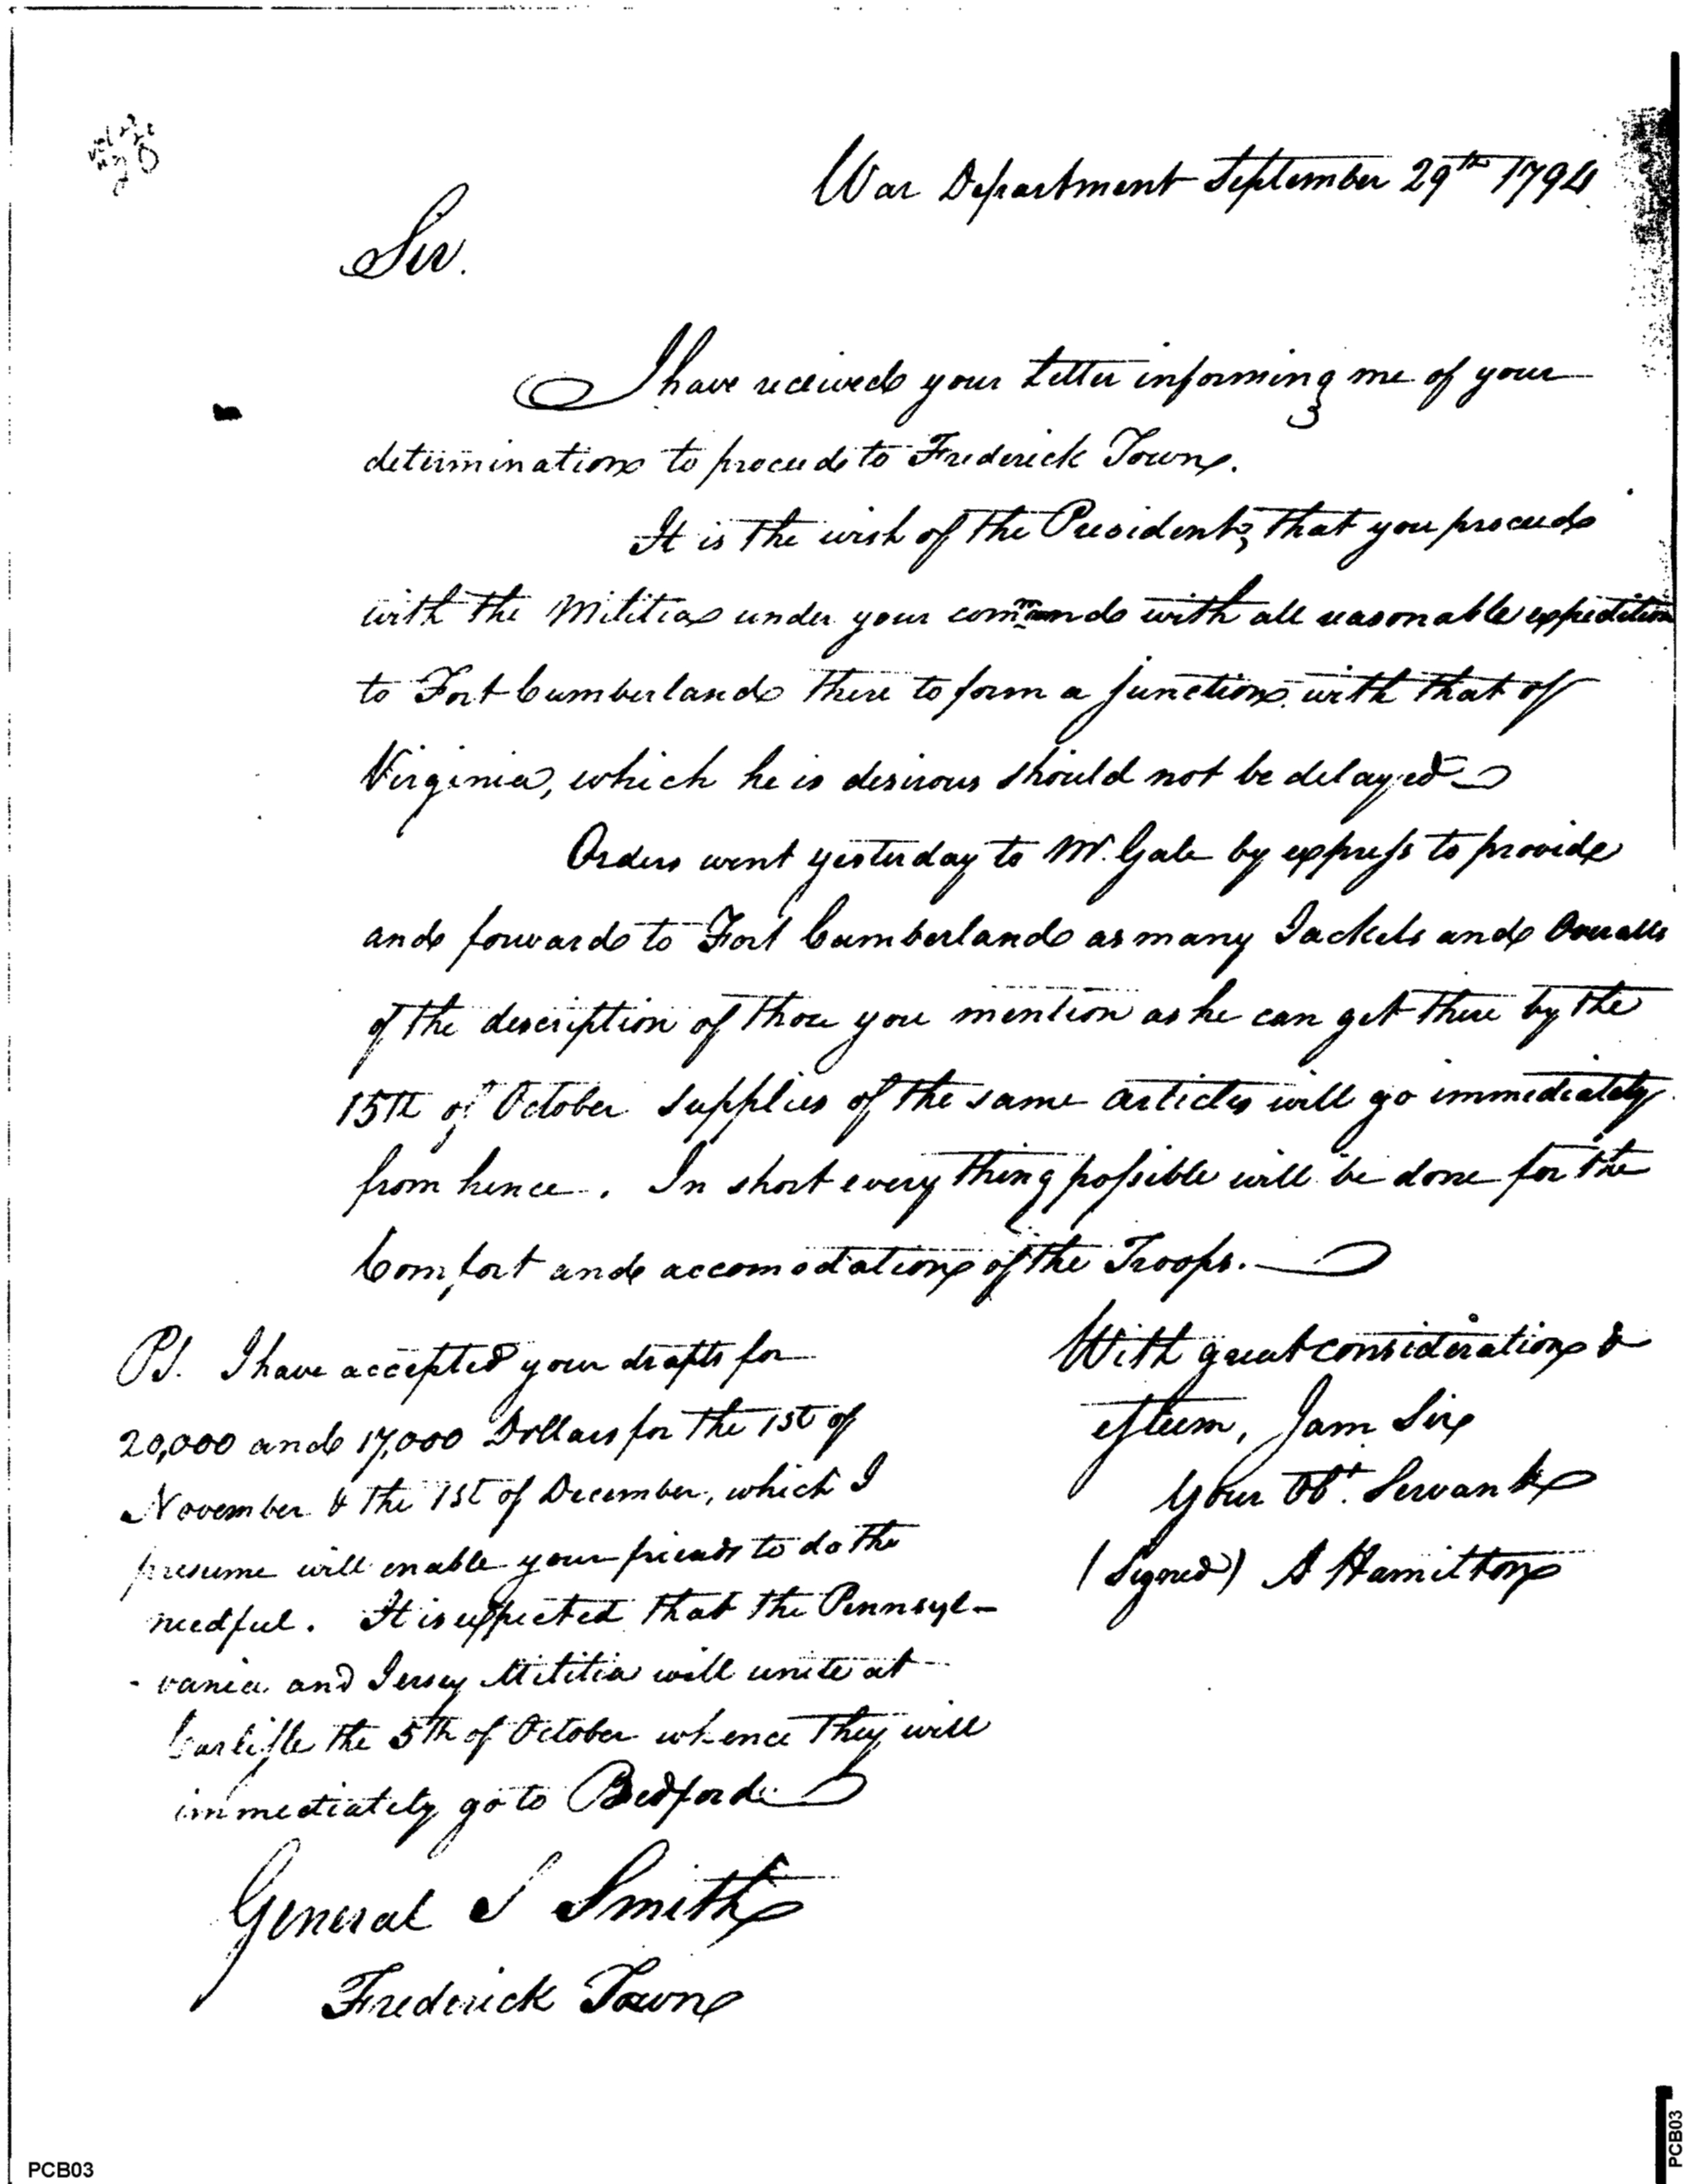 War Department September 29th 1794
Sir.
I have received your Letter informing me of your
determination to proceed to Frederick Town.
It is the wish of the President, that you proceed
with the Militia under your command with all reasonable expedition
to Fort Cumberland there to form a junction with that of
Virginia, which he is desirous should not be delayed
Orders went yesterday to Mr. Gale by express to provide
and forward to Fort Cumberland as many Jackets and Overalls
of the description of those you mention as he can get there by the
15th of October Supplies of the same articles will go immediately
from hence. In short every thing possible will be done for the
Comfort and accomodation of the Troops.
With great consideration &
esteem, I am Sir
Your Obt. Servant
(Signed) A Hamilton
PS. I have accepted your drafts for
20,000 and 17,000 Dollars for the 1st of
November & the 1st of December, which I
presume will enable your friends to do the
needful. It is expected that the Pennsyl-
-vania and Jersey Militia will unite at
Carlisle the 5th of October whence they will
immediately go to Bedford
General S Smith
Frederick Town
PCB03
PCB03